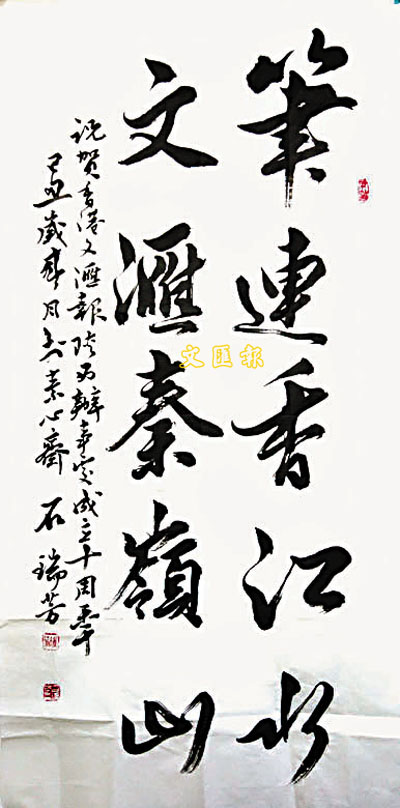 筆連香江水
文滙秦嶺山
祝賀香港文滙報陝西辦事處成立十周年
己丑歲春月於素心齋石瑞芳
文匯報